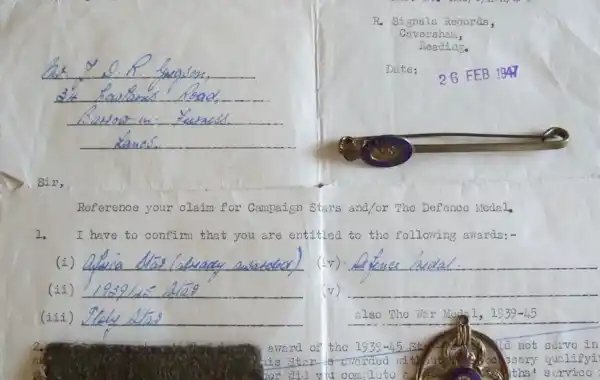 R. Signals Records,
Caversham,
Reading.
Date: 26 FEB 1947
J. D. R.
Road,
Barrow-in-Furness
Lancs.
Sir,
Reference your claim for Campaign Stars and/or The Defence Medal.
1. I have to confirm that you are entitled to the following awards:-
(i) Africa Star (already awarded) (iv) Defence Medal.
(ii) 1939/45 Star (v)
(iii) Italy Star also The War Medal, 1939-45
2. award of the 1939-45 not serve in
his Star is awarded qualifyi
did you complete service